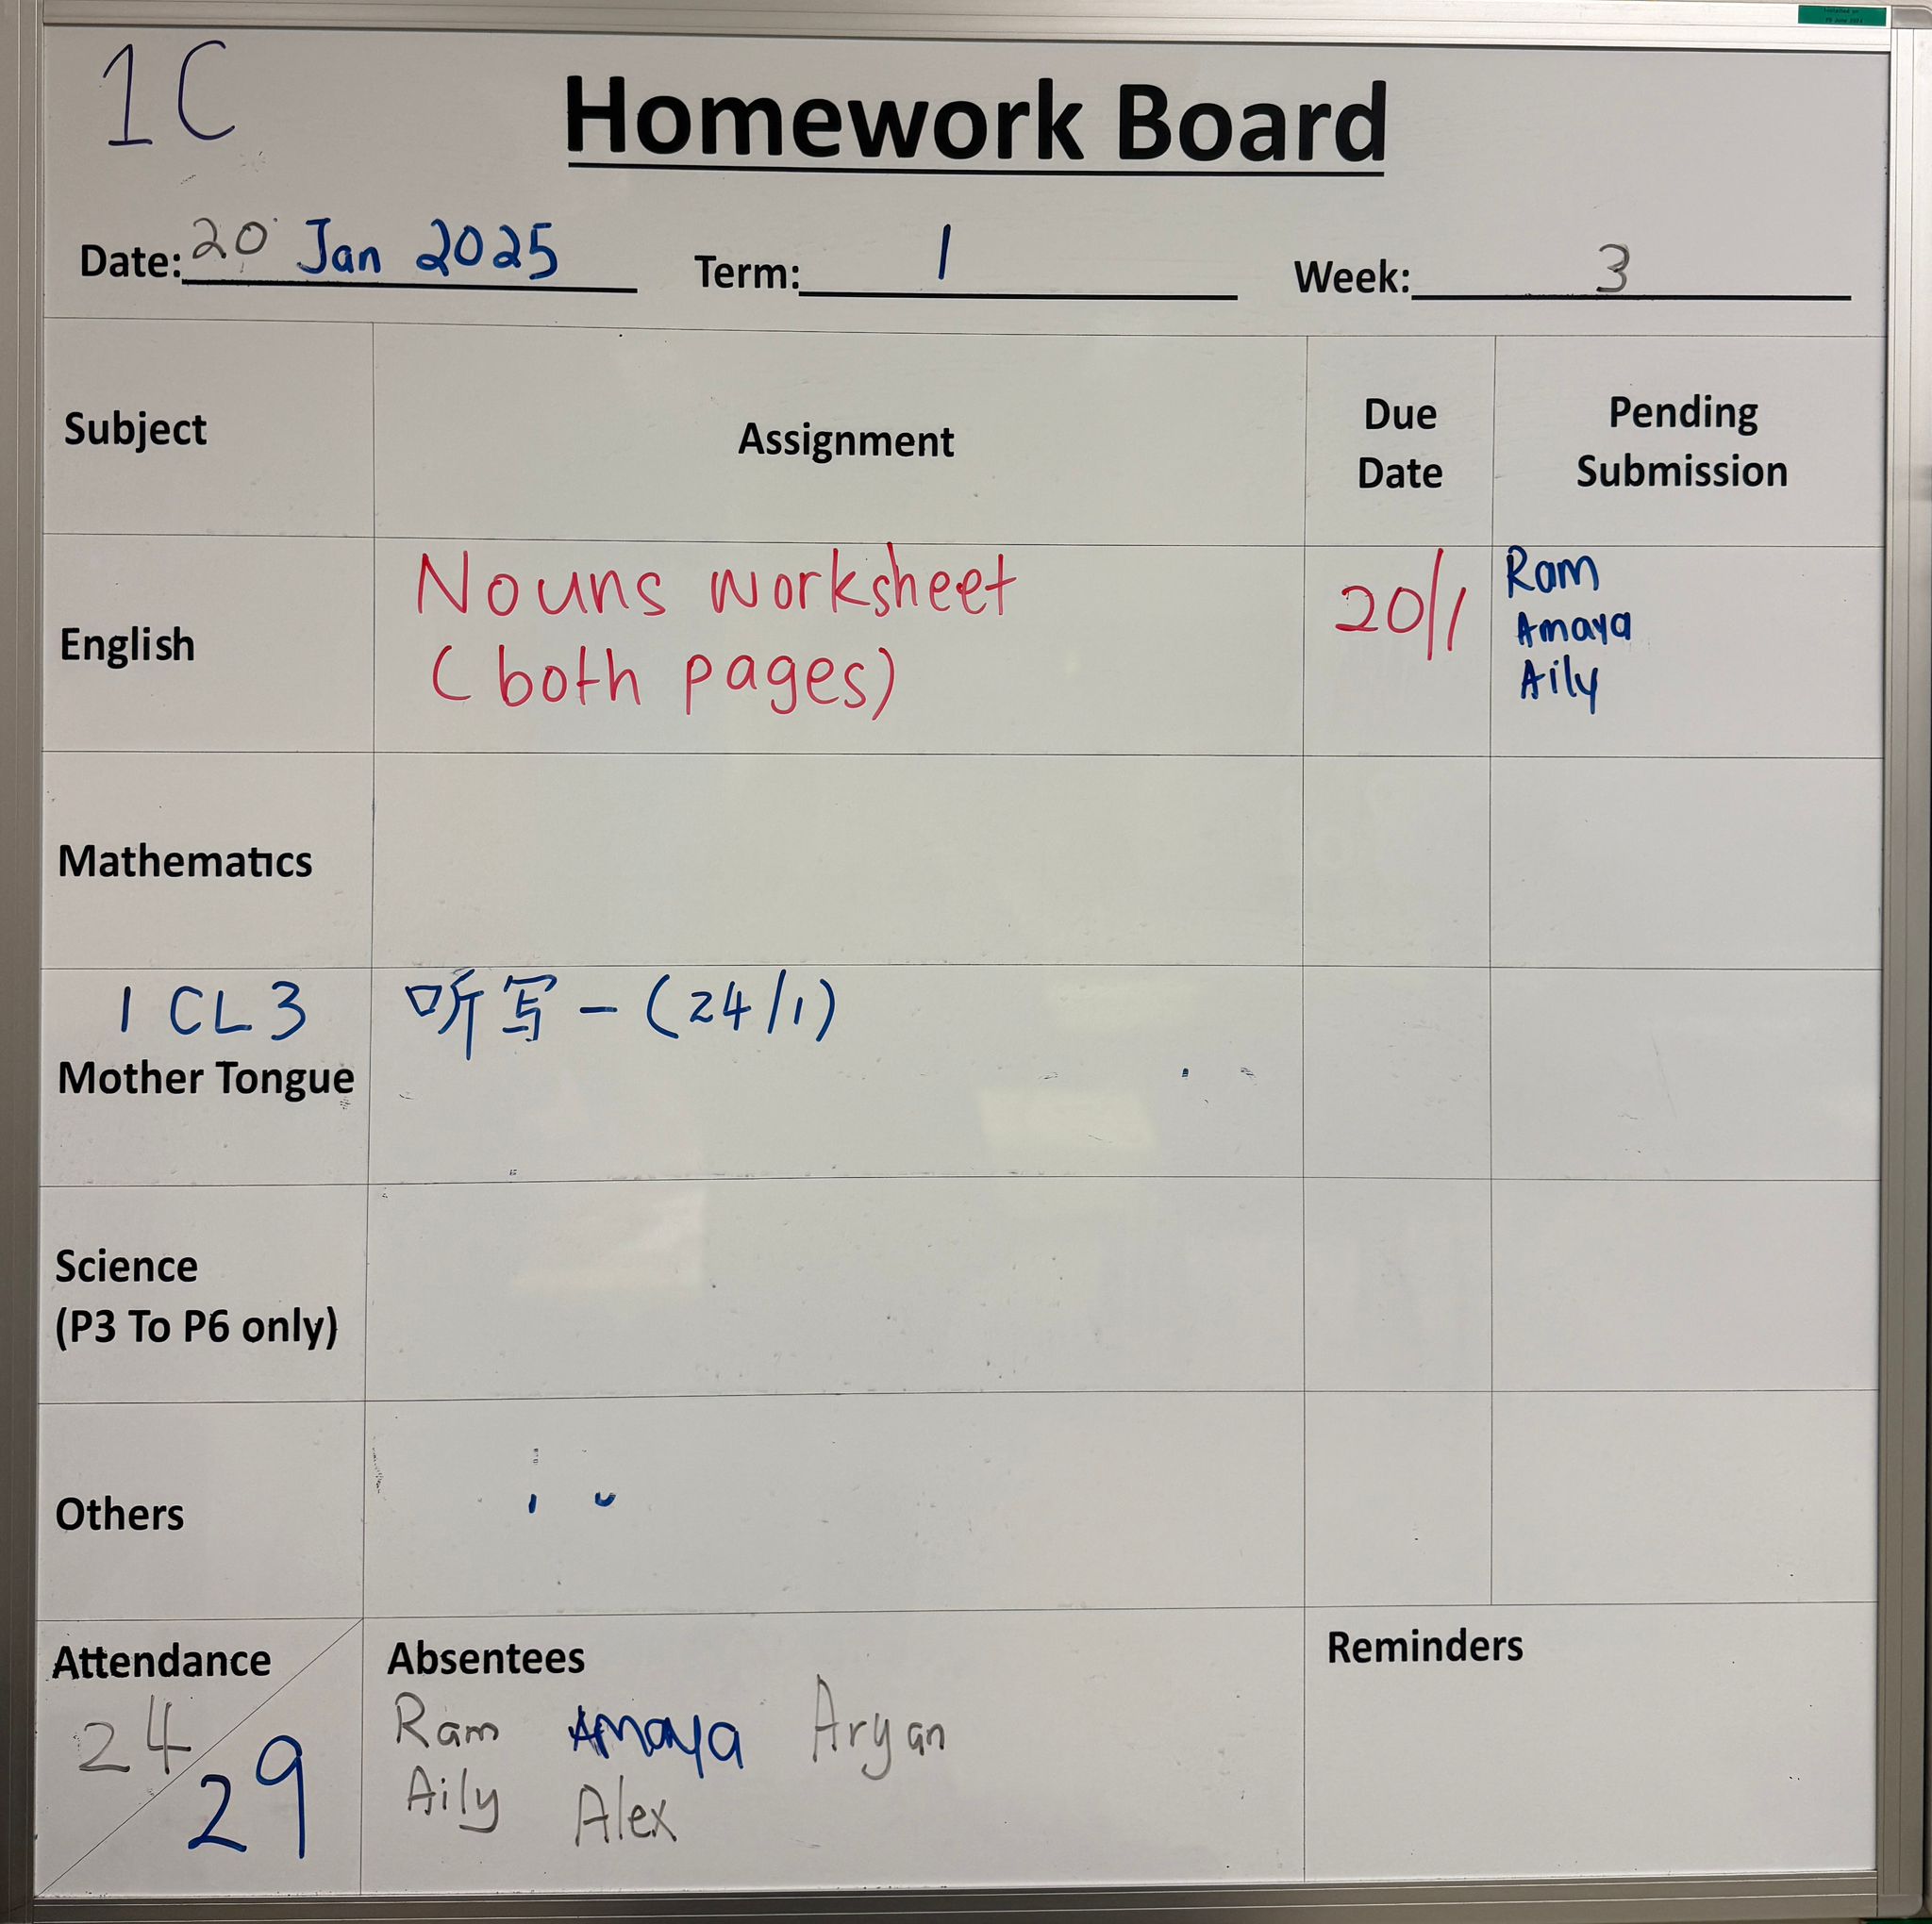 1C
Homework Board
Date: 20 Jan 2025 Term: 1 Week: 3
Subject
Assignment
Due
Date
Pending
Submission
English
Nouns worksheet
(both pages)
20/1
Ram
Amaya
Aily
Mathematics
1 CL 3
Mother Tongue
听写 - (24/1)
Science
(P3 To P6 only)
Others
Attendance
24
29
Absentees
Ram Amaya Aryan
Aily Alex
Reminders